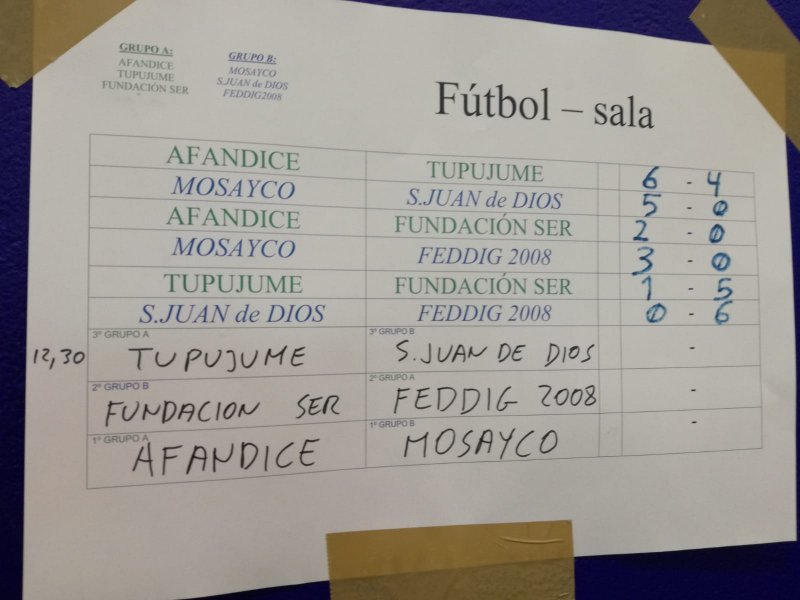 GRUPO A:
AFANDICE
TUPUJUME
FUNDACIÓN SER
GRUPO B:
MOSAYCO
S.JUAN de DIOS
FEDDIG2008
Fútbol – sala
AFANDICE TUPUJUME 6 - 4
MOSAYCO S.JUAN de DIOS 5 - 0
AFANDICE FUNDACIÓN SER 2 - 0
MOSAYCO FEDDIG 2008 3 - 0
TUPUJUME FUNDACIÓN SER 1 - 5
S.JUAN de DIOS FEDDIG 2008 0 - 6
3º GRUPO A 3º GRUPO B
12,30 TUPUJUME S.JUAN DE DIOS -
2º GRUPO B 2º GRUPO A
FUNDACION SER FEDDIG 2008 -
1º GRUPO A 1º GRUPO B
AFANDICE MOSAYCO -